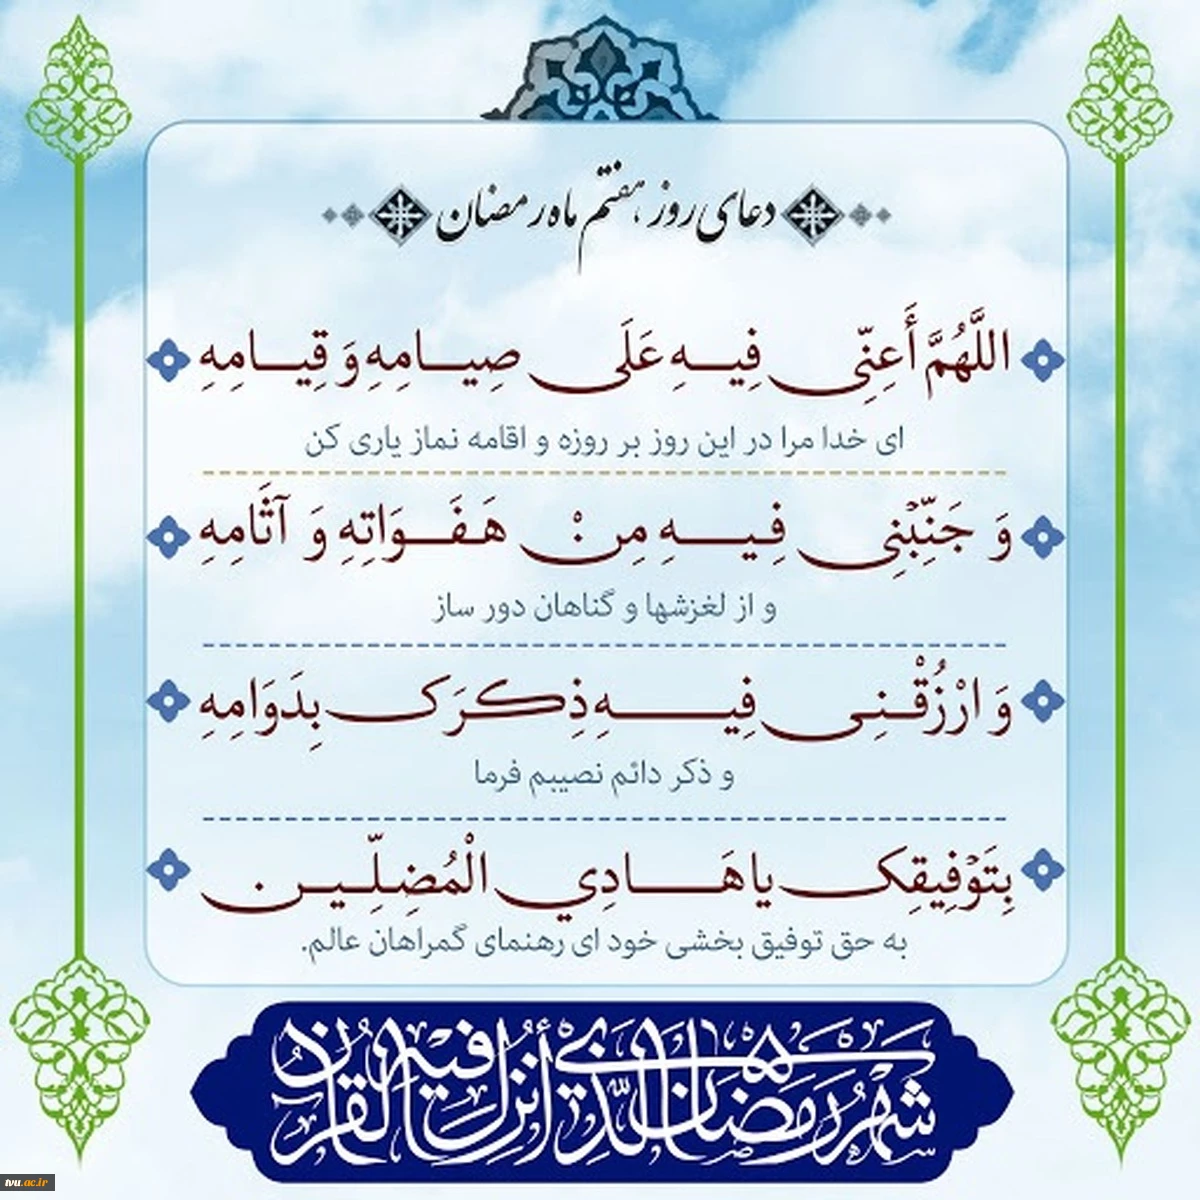 دعای روز هفتم ماه رمضان
اللَّهُمَّ أَعِنِّی فِیهِ عَلَی صِیامِهِ وَ قِیامِهِ
ای خدا مرا در این روز بر روزه و اقامه نماز یاری کن
وَ جَنِّبْنِی فِیهِ مِنْ هَفَوَاتِهِ وَ آثَامِهِ
و از لغزشها و گناهان دور ساز
وَ ارْزُقْنِی فِیهِ ذِکرَک بِدَوَامِهِ
و ذکر دائم نصیبم فرما
بِتَوْفِیقِک یا هَادِي الْمُضِلِّین
به حق توفیق بخشی خود ای رهنمای گمراهان عالم.
شَهْرُ رَمَضَانَ الَّذِي أُنْزِلَ فِيهِ الْقُرْآنُ
tvu.ac.ir